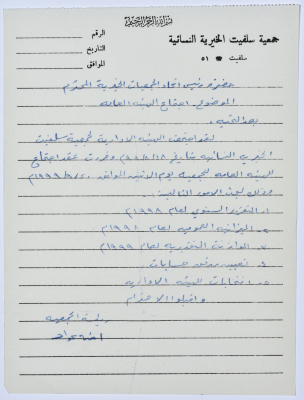 بسم الله الرحمن الرحيم
جمعية سلفيت الخيرية النسائية
سلفيت ☎ ٥١
الرقم
التاريخ
الموافق
حضرة رئيس اتحاد الجمعيات الخيرية المحترم
الموضوع اجتماع الهيئة العامة
بعد التحية،
لقد اجتمعت الهيئة الادارية لجمعية سلفيت
الخيرية النسائية بتاريخ وقررت عقد اجتماع
للهيئة العامة للجمعية يوم الموافق
وذلك لبحث الامور التالية:
١. التقرير السنوي لعام ١٩٩٨
٢. الميزانية العمومية لعام ١٩٩٨
٣. الموازنة التقديرية لعام ١٩٩٩
٤. تعيين مدقق حسابات
٥. انتخابات للهيئة الادارية
واقبلوا الاحترام
رئيسة الجمعية